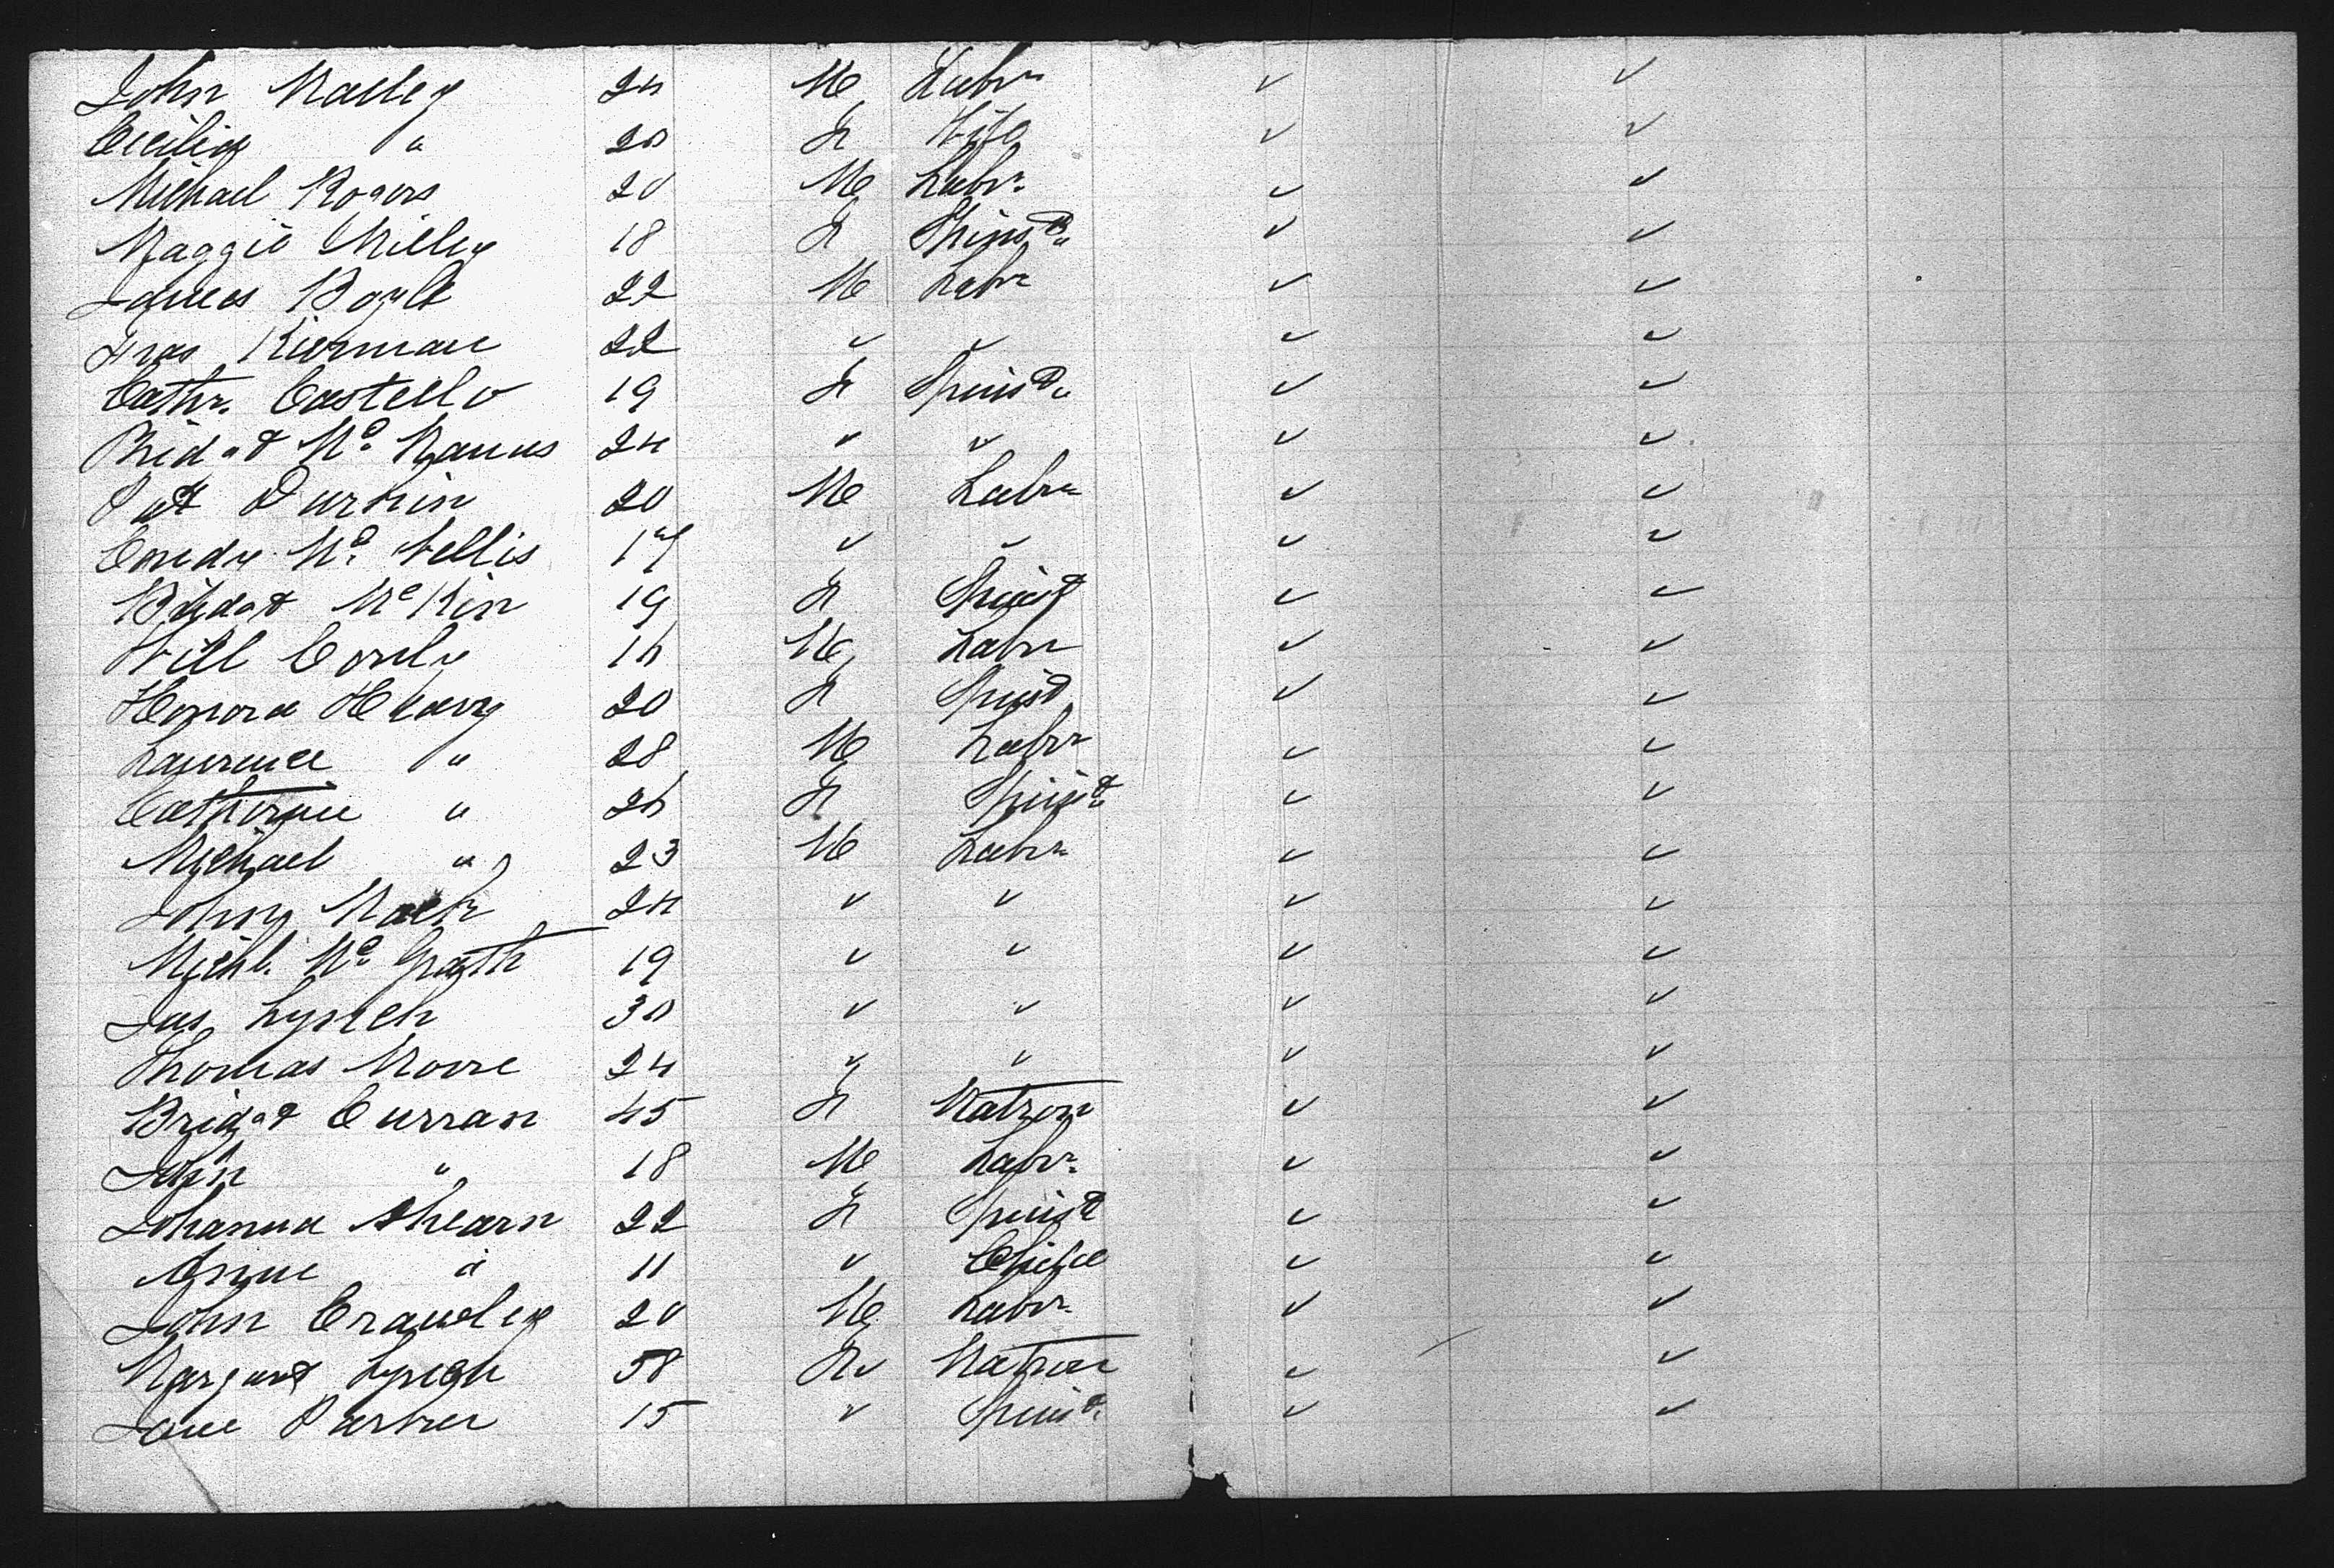 John Malley 24 M Labr
Cecilia " 20 F Wife
Michael Rogers 20 M Labr
Maggie Milley 18 F Spinst
James Boyle 22 M Labr
Fras Kiernan 22 " "
Cathr. Costello 19 F Spinst
Bridgt Mc Manus 24 " "
Pat Durkin 20 M Labr
Mc Nellis 17 " "
Bridgt McKin 19 F Spinst
Will Conly 16 M Labr
Honora Heavy 20 F Spinst
Laurence " 28 M Labr
Catherine " 26 F Spinst
Michael " 23 M Labr
John Mack 24 " "
Michl. Mc Grath 19 " "
Jas Lynch 30 " "
Thomas Moore 24 " "
Bridgt Curran 45 F Matron
John " 18 M Labr
Johanna Ahearn 22 F Spinst
Annie " 11 " Child
John Crawley 20 M Labr
Margaret Lynch 58 F Matron
Jane 15 " Spinst